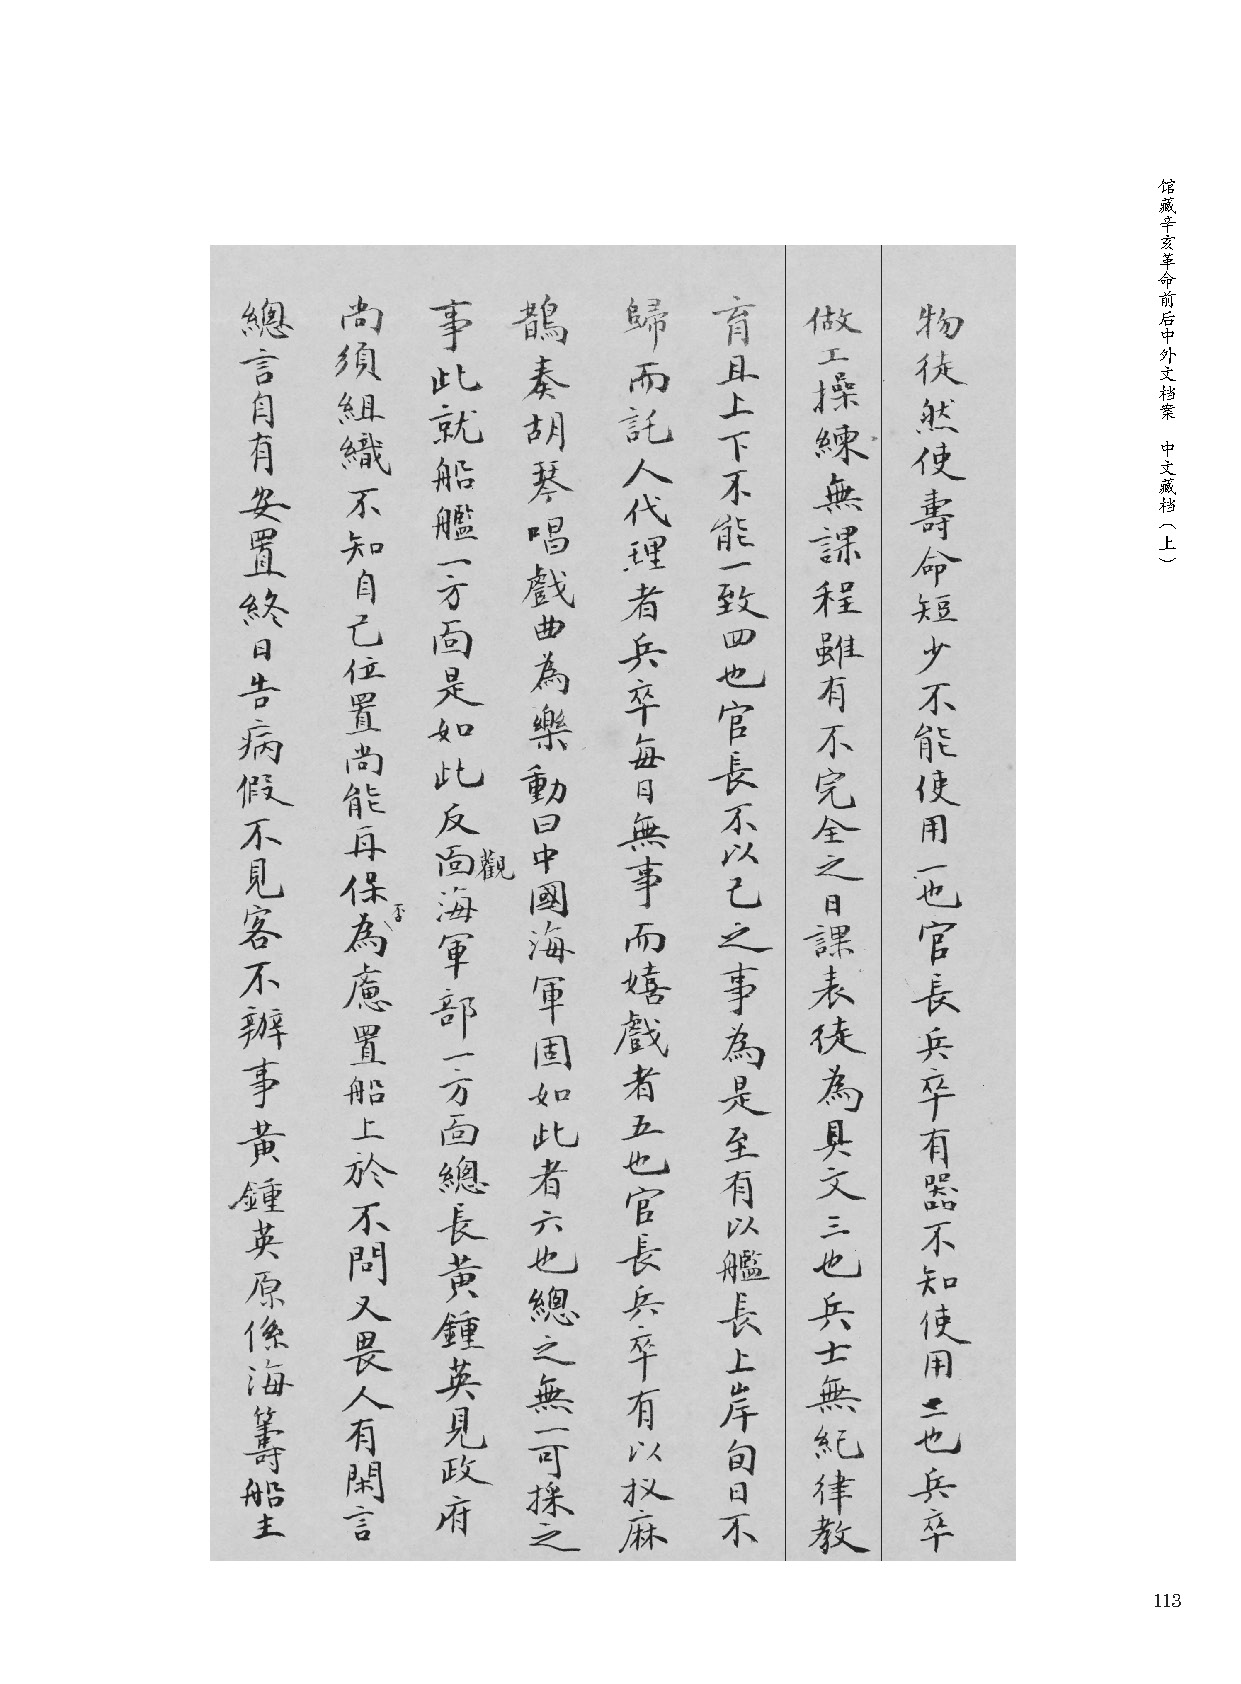 馆藏辛亥革命前后中外文档案　中文藏档（上）
物徒然使壽命短少不能使用一也官長兵卒有器不知使用二也兵卒
做工操練無課程雖有不完全之日課表徒為具文三也兵士無紀律教
育且上下不能一致四也官長不以己之事為是至有以艦長上岸旬日不
歸而託人代理者兵卒每日無事而嬉戲者五也官長兵卒有以扠麻
鵲奏胡琴唱戲曲為樂動曰中國海軍固如此者六也總之無一可採之
事此就船艦一方面是如此反面觀海軍部一方面總長黃鍾英見政府
尚須組織不知自己位置尚能再保否為慮置船上於不問又畏人有閑言
總言自有安置終日告病假不見客不辦事黃鍾英原係海籌船主
113